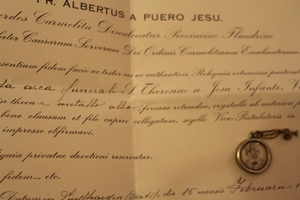 FR. ALBERTUS A PUERO JESU.
Sacerdos Carmelita Discalceatus Provinciae Flandriae
Causarum Servorum Dei Ordinis Carmelitarum Excalceatorum
fidem facio ac testor me ex authenticis Reliquiis extraxisse particulam
arca funerali S. Theresiae a Jesu Infante, V.
in theca e metallo albo formae rotundae, crystallo ab anteriori
bene clausam et filo
impresso obfirmavi.
privatae devotioni reservatur.
fidem...
Datum die 15 mensis Februarii